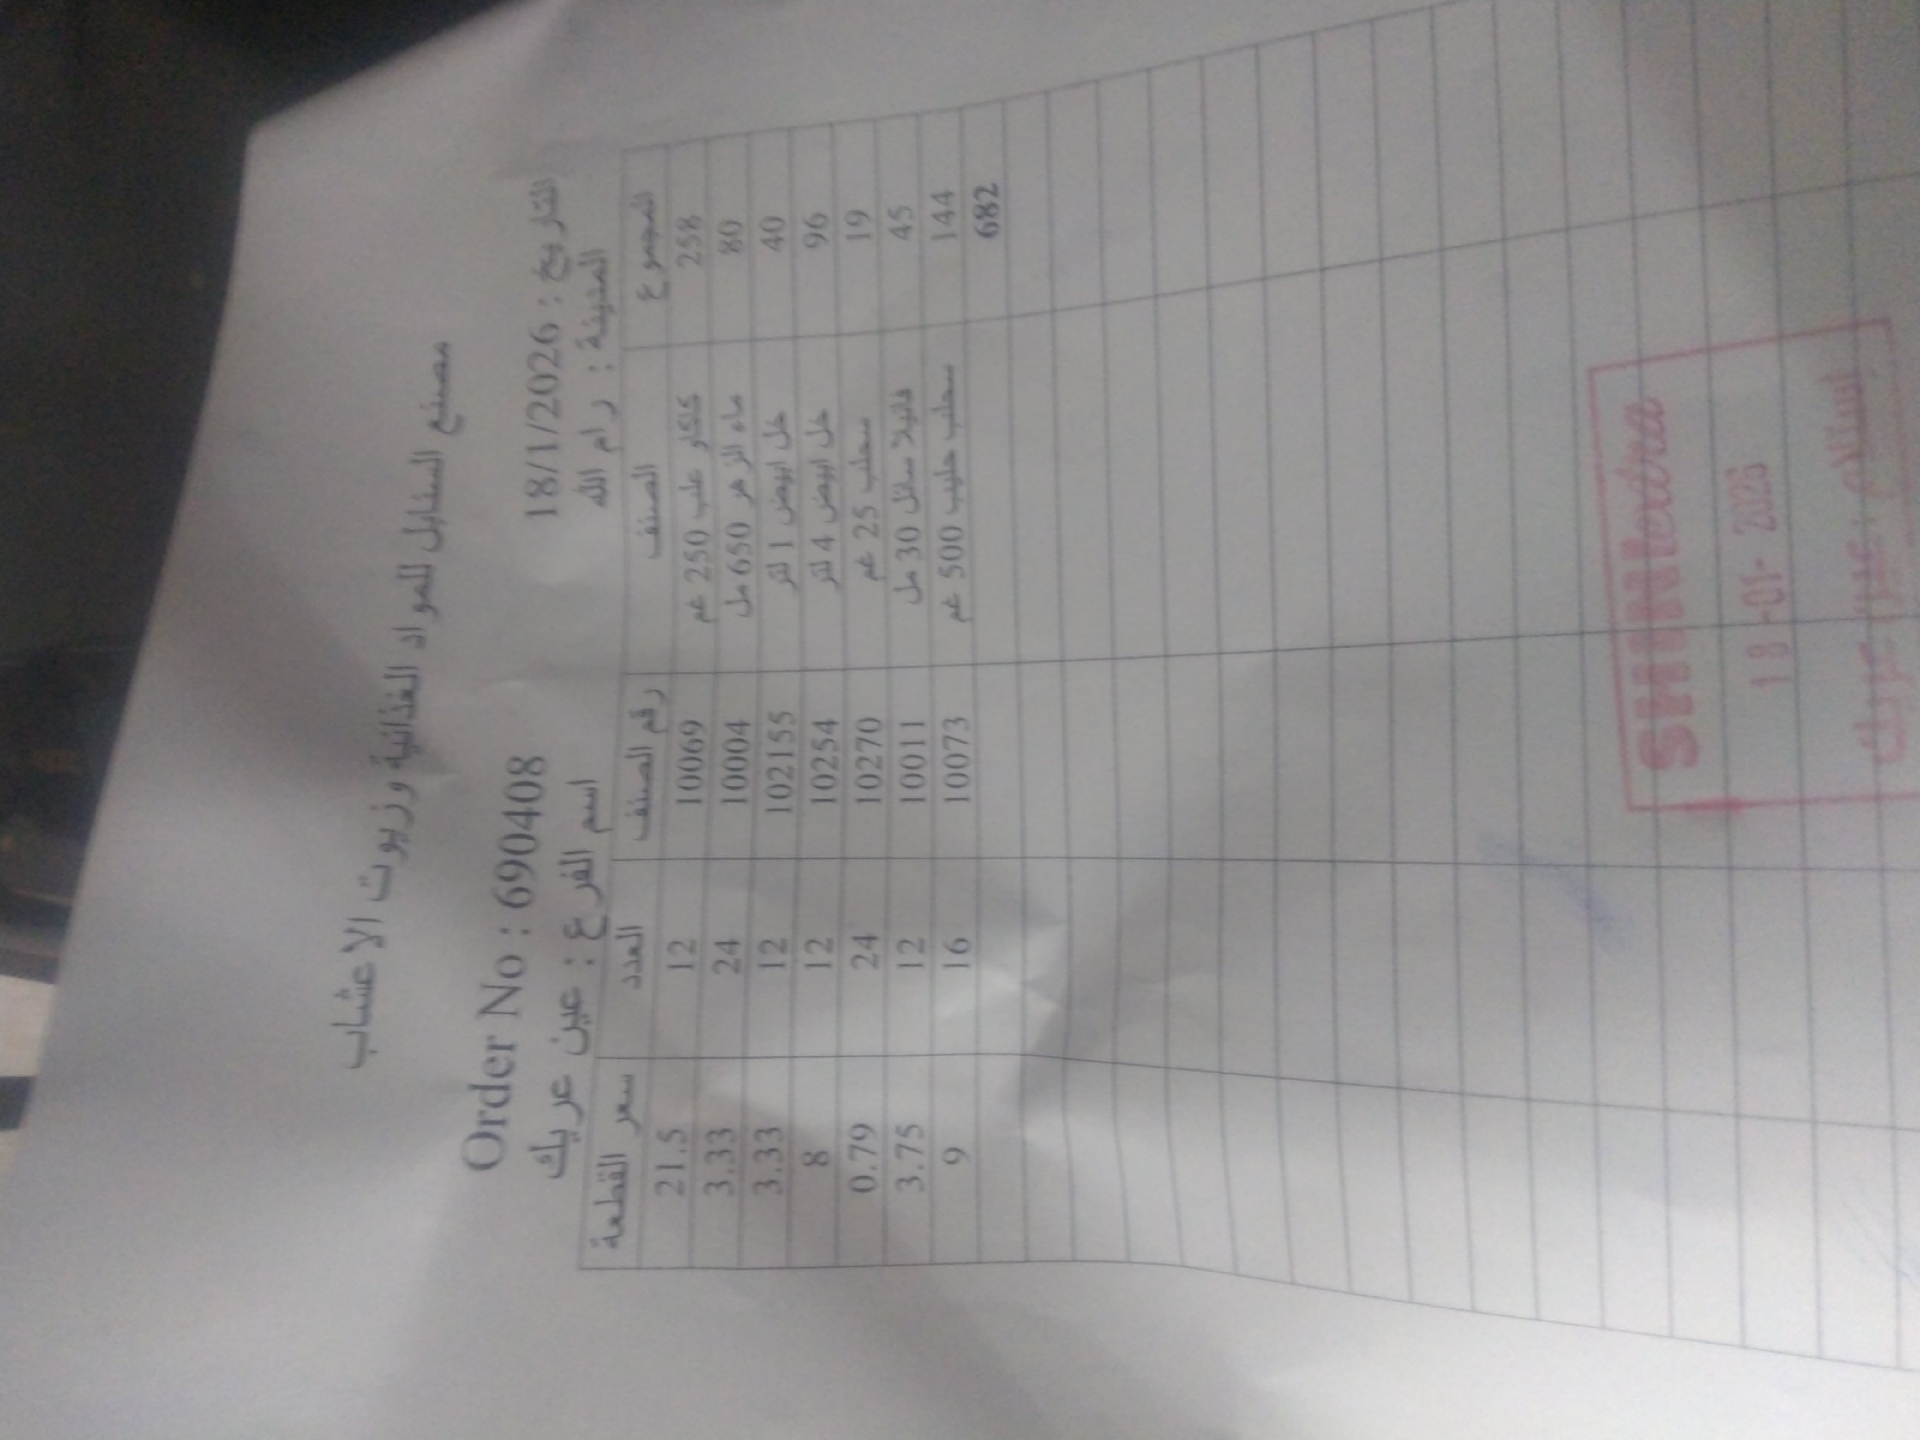 مصنع السنابل للمواد الغذائية وزيوت الاعشاب
Order No : 690408 التاريخ : 18/1/2026
اسم الفرع : عين عريك المدينة : رام الله
سعر القطعة العدد رقم الصنف الصنف المجموع
21.5 12 10069 كاكاو علب 250 غم 258
3.33 24 10004 ماء الزهر 650 مل 80
3.33 12 102155 خل ابيض 1 لتر 40
8 12 10254 خل ابيض 4 لتر 96
0.79 24 10270 سحلب 25 غم 19
3.75 12 10011 فانيلا سائل 30 مل 45
9 16 10073 سحلب حليب 500 غم 144
682
SHINI extra
18 -01- 2026
إستلام : عين عريك